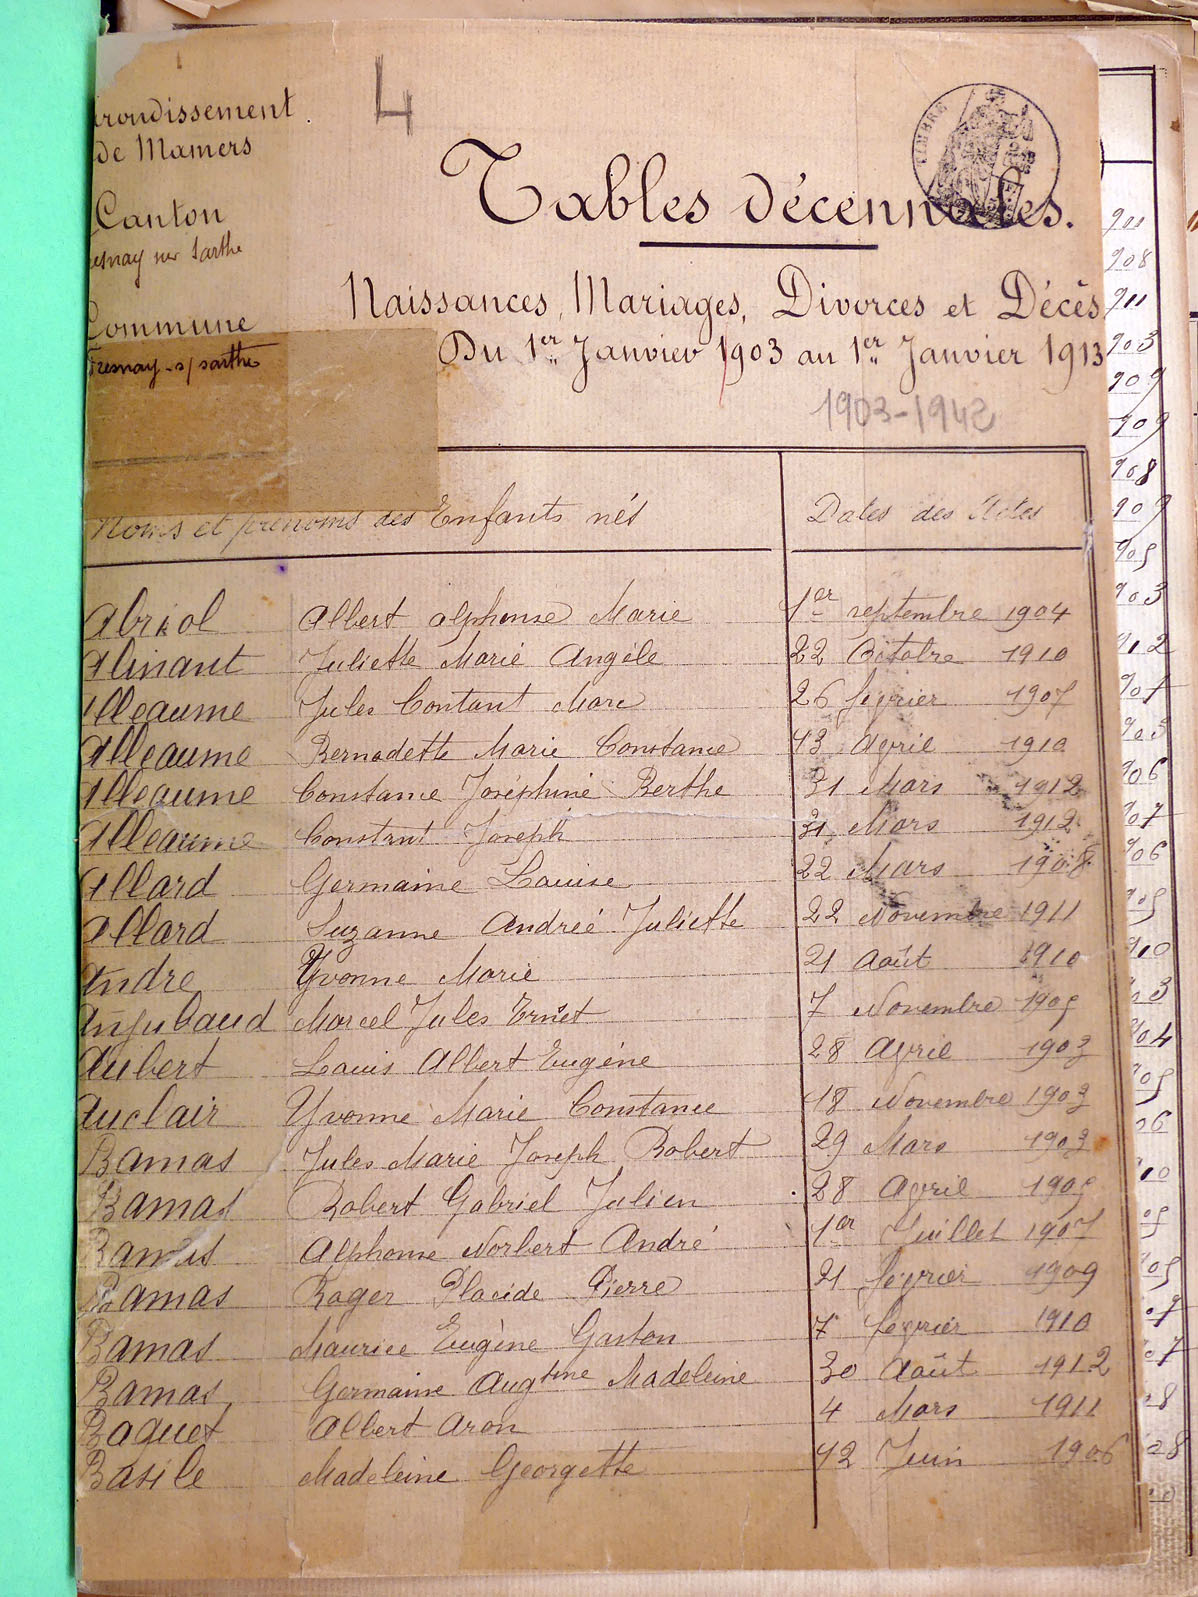 4
TIMBRE
arrondissement
de Mamers
Canton
esnay sur Sarthe
Commune
Fresnay-s/sarthe
Tables décennales.
Naissances, Mariages, Divorces et Décès
Du 1er Janvier 1903 au 1er Janvier 1913
1903-1942
Noms et prénoms des Enfants nés Dates des Actes
Abriol Albert alphonse Marie 1er septembre 1904
Alinant Juliette Marie Angèle 22 Octobre 1910
Alleaume Jules Contant Marc 26 février 1907
Alleaume Bernadette Marie Constance 13 Avril 1910
Alleaume Constance Joséphine Berthe 31 Mars 1912
Alleaume Constant Joseph 31 Mars 1912
Allard Germaine Louise 22 Mars 1908
Allard Suzanne Andrée Juliette 22 Novembre 1911
Andre Yvonne Marie 21 Août 1910
Anjubaud Marcel Jules Ernest 7 Novembre 1905
Aubert Louis Albert Eugène 28 Avril 1903
Auclair Yvonne Marie Constance 18 Novembre 1903
Bamas Jules Marie Joseph Robert 29 Mars 1903
Bamas Robert Gabriel Julien 28 Avril 1905
Bamas Alphonse Norbert André 1er Juillet 1907
Bamas Roger Placide Pierre 21 février 1909
Bamas Maurice Eugène Gaston 7 février 1910
Bamas Germaine Augtine Madeleine 30 Août 1912
Baquet Albert Aron 4 Mars 1911
Basile Madeleine Georgette 12 Juin 1906